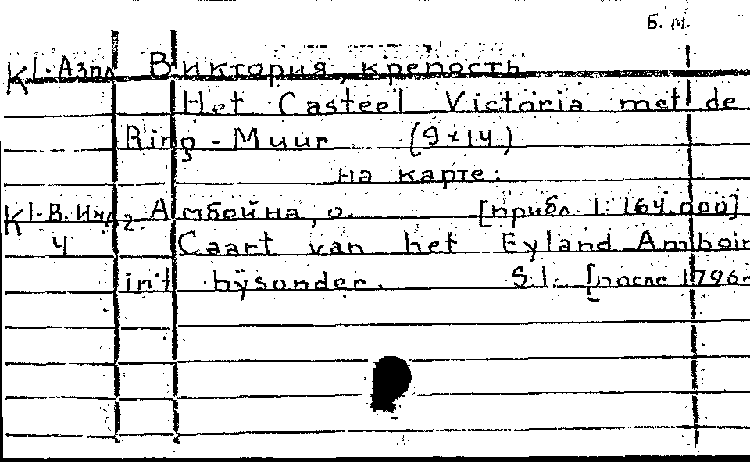 Б. м.
К 1-Азпл Виктория, крепость
Het Casteel Victoria met de
Ring-Muur (9x14)
на карте:
К 1-В. Инд. 2. Амбойна, о. [прибл. 1:164.000]
4 Caart van het Eyland Amboin
int bysonder. S.l. [после 1796г